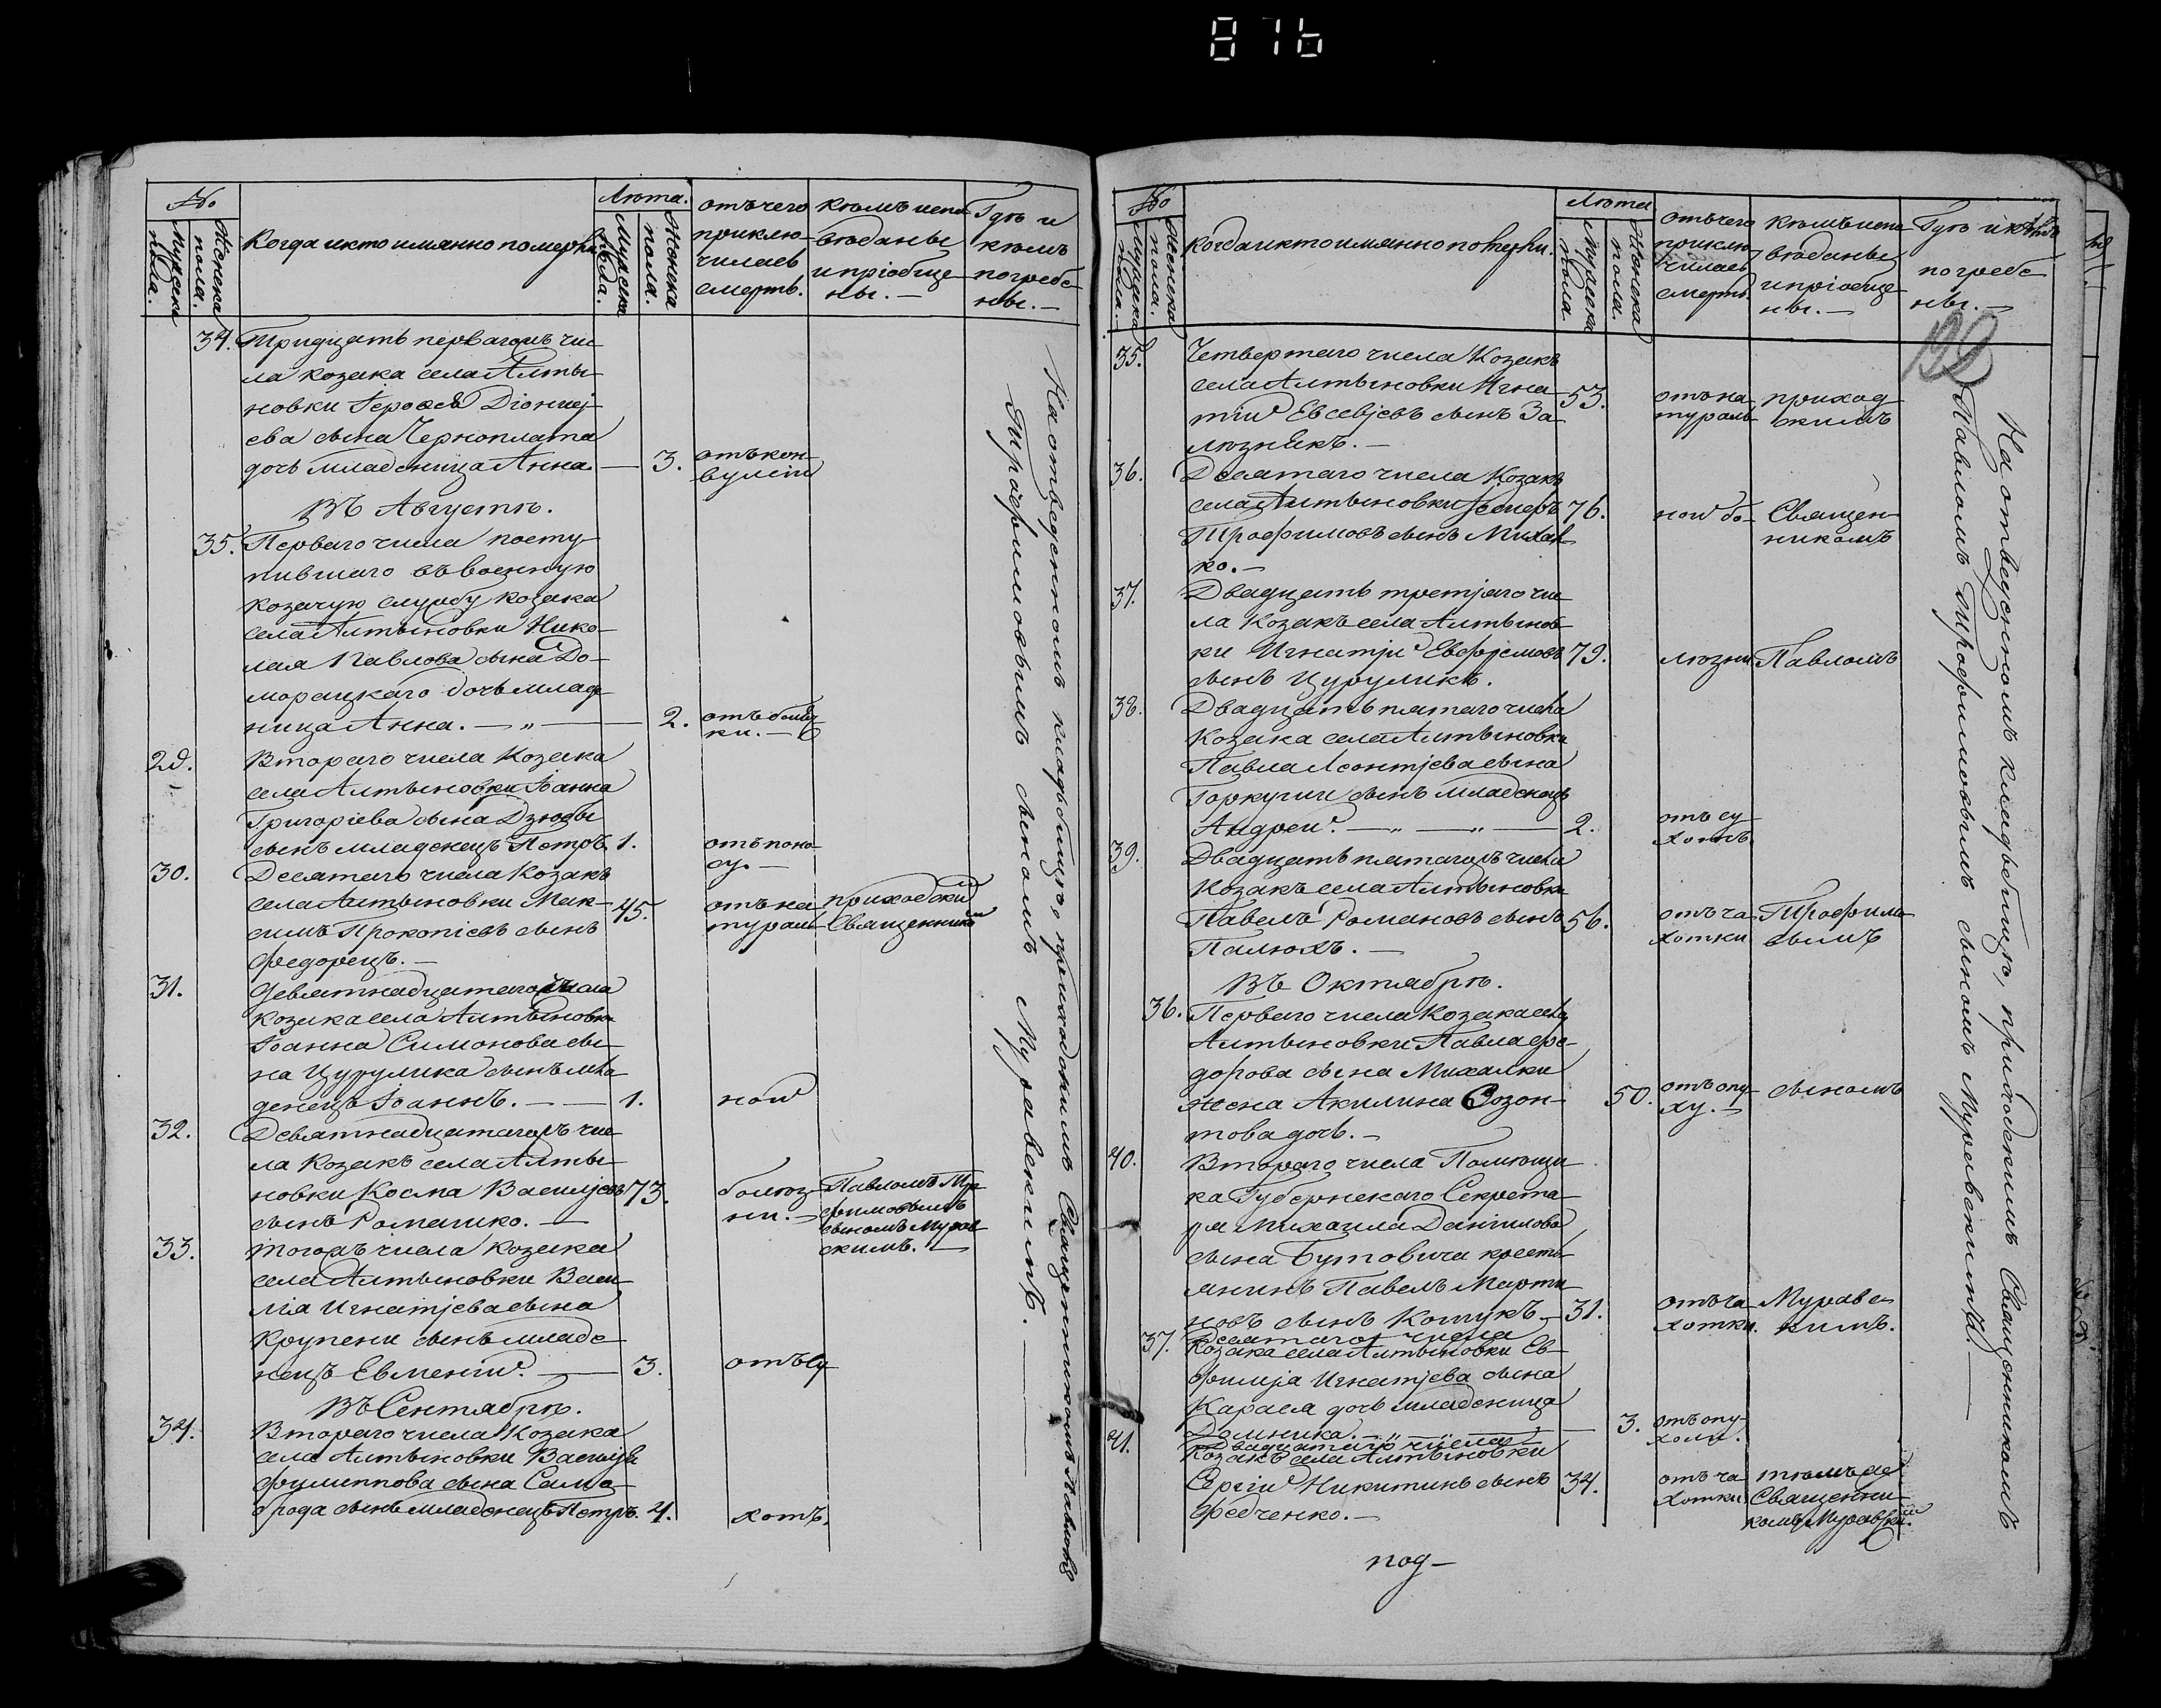 876
№
Мужеска пола.
Женска пола.
Когда и кто имянно померли
Лѣта.
Мужеска пола.
Женска пола.
отъ чего приклю-
чилась
смерть.
кѣмъ испо-
вѣданы
и пріобще-
ны. —
Гдѣ и
кѣмъ
погребе-
ны. —
34. Тридцать первагожъ чис-
ла козака села Алты-
новки Іерофея Діонисі-
ева сына Черноплата
дочь младеница Анна. — 3. отъ кон-
вулсіи
Въ Августѣ.
35. Перваго числа посту-
пившаго въ военную
козачую службу козака
села Алтыновки Нико-
лая Павлова сына До-
морацкаго дочь млад-
ница Анна. — „ — 2.
29. Втораго числа Козака
села Алтыновки Іоанна
Григоріева сына Дзюбы
сынъ младенецъ Петръ. 1. отъ поно-
су. —
30. Десятаго числа Козакъ
села Алтыновки Мак-
симъ Прокопіевъ сынъ 45. отъ на-
турал- приходским
Священником
Федорецъ. —
31. Девятнадцатаго числа
козака села Алтыновки
Іоанна Симонова сы-
на Цурулика сынъ мла
денецъ Іоаннъ. — 1. ной
32. Девятнадцатагожъ чис-
ла Козакъ села Алты-
новки Косма Василіевъ 73. болѣз-
ни. — Павломъ Тро-
фимовымъ
сыномъ Мурав
скимъ. —
сынъ Ромашко. —
33. Тогожъ числа Козака
села Алтыновки Васи-
лія Игнатіева сына
Крупени сынъ младе-
нецъ Евменій. — 3. отъ су-
Въ Сентябрѣ.
34. Втораго числа Козака
села Алтыновки Василія
Филиппова сына Само-
брода сынъ младенецъ Петръ. 4. хотъ.
На отведенномъ кладбищѣ, приходскимъ Священникомъ Павломъ
Трофимовымъ сыномъ Муравскимъ. —
№
Мужеска пола.
Женска пола.
Когда и кто имянно померли.
Лѣта
Мужеска пола
Женска пола.
отъ чего
приклю-
чилась
смерть.
Кѣмъ испо-
вѣданы
и пріобще-
ны. —
Гдѣ и кѣмъ
погребе-
ны. —
192
35. Четвертаго числа Козакъ
села Алтыновки Игна-
тій Евсевіевъ сынъ За- 53. отъ на-
турал- приход-
скимъ
люзнякъ. —
36. Десятаго числа Козакъ
села Алтыновки 76. ной бо- Священ-
никомъ
Трофимовъ сынъ Михал-
ко. —
37. Двадцать третіяго чис-
ла Козакъ села Алтынов-
ки Игнатій Евфремовъ 79. лѣзни Павломъ
сынъ Цуруликъ.
38. Двадцать пятаго числа
Козака села Алтыновки
Павла Леонтіева сына
Горкуши сынъ младенецъ
Андрей. — „ — „ — 2. отъ су-
хотъ.
39. Двадцать пятагожъ числа
Козакъ села Алтыновки
Павелъ Романовъ сынъ 56. отъ ча-
хотки Трофимо-
вымъ
Палюхъ. —
Въ Октябрѣ.
36. Перваго числа Козака села
Алтыновки Павла Фе-
дорова сына Михалки
жена Акилина Созон- 50. отъ опу-
ху. — сыномъ
това дочь. —
40. Втораго числа Помѣщи-
ка Губернскаго Секрета-
ря Михаила Даніилова
сына Бутовича кресть-
янинъ Павелъ Марти-
новъ сынъ Котукъ. — 31. отъ ча-
хотки. Муравс-
кимъ.
37. Десятаго числа
Козака села Алтыновки Ев-
фимія Игнатіева сына
Карася дочь младеница
Домника. — „ — 3. отъ опу-
холи.
41. Двадцатаго числа
Козакъ села Алтыновки
Сергій Никитинъ сынъ 34. отъ ча-
хотки тѣмъ же
Священни-
комъ Муравским.
Федченко. —
под-
На отведенномъ кладбищѣ, приходскимъ Священникомъ
Павломъ Трофимовымъ сыномъ Муравскимъ. —